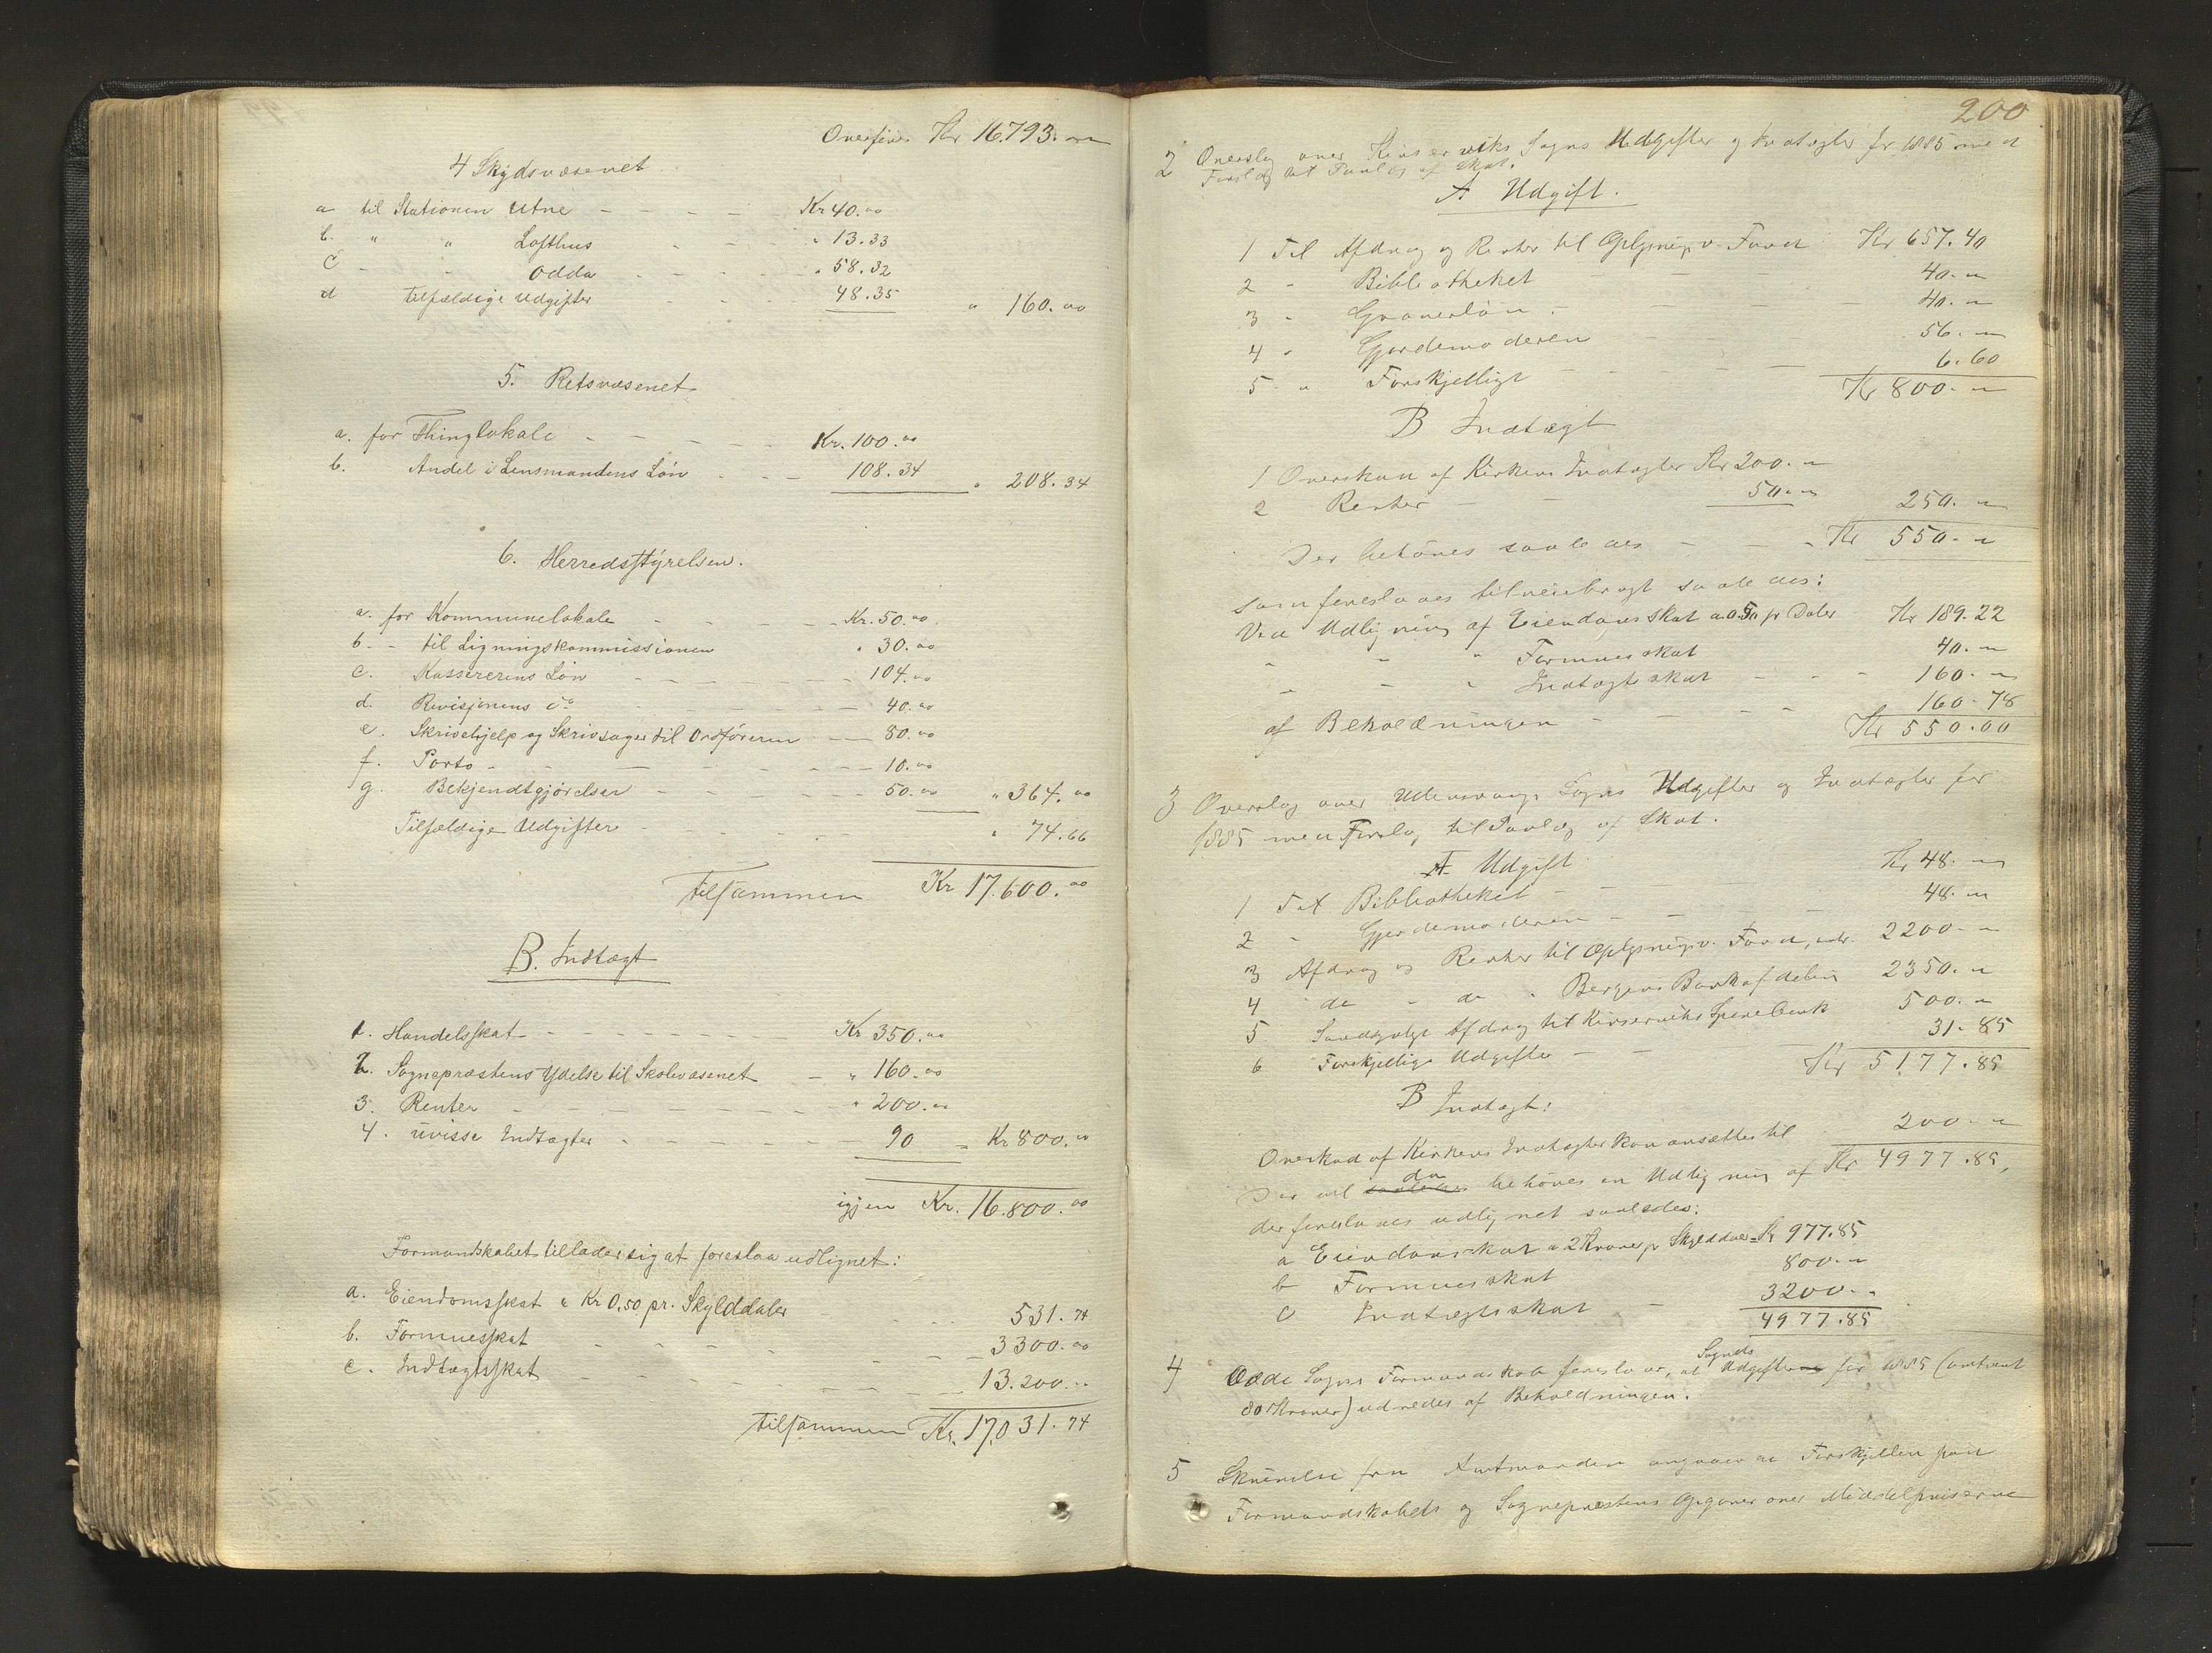 Overføres Kr 16.793. "
4 Skydsvæsenet
a til Stationen Utne - - - - Kr 40."
b. " " Lofthus - - - " 13.33
c - - Odda - - - - " 58.32
d tilfældige Udgifter - - - 48.35 " 160.00
5. Retsvæsenet
a. for Thinglokale - - - - - Kr. 100.00
b. Andel i Lensmandens Løn - - - 108.34 " 208.34
6. Herredsstyrelsen.
a. for Kommunelokale - - - - Kr. 50.00
b. - til Ligningskommissionen " 30.00
c. Kassererens Løn - - - - - 104.00
d. Revisjonens do - - - - 40.00
e. Skrivehjelp og Skrivsager til Ordføreren - - 80.00
f. Porto - - - - - 10.00
g. Bekjendtgjørelser - - - - - 50.00 " 364.00
Tilfældige Udgifter - - - - " 74.66
tilsammen Kr 17.600.00
B. Indtægt
1. Handelsskat - - - - - - Kr 350.00
2. Sognepræstens Ydelse til Skolevæsenet - " 160.00
3. Renter - - - - - - - " 200.00
4. uvisse Indtægter - - - - - 90 = Kr 800.00
igjen Kr. 16.800.00
Formandskabet tillader sig at foreslaa udlignet:
a. Eiendomsskat a Kr 0,50 pr. Skylddaler - - - 531.74
b. Formuesskat - - - - - - 3300.00
c. Indtægtsskat - - - - - - 13.200.00
tilsammen Kr. 17,031.74
200
2 Overslag over Kinserviks Sogns Udgifter og Indtægter for 1885 med
Forslag til Paalæg af Skat.
A Udgift.
1 Til Afdrag og Renter til Oplysningsv. Fond Kr 657.40
2 - Bibliotheket - - - 40. "
3 - Graverløn - - - 40. "
4 - Gjordemoderen - - - 56. "
5 - " Forskjelligt - - - 6.60
Kr 800. "
B Indtægt
1 Overskud af Kirkens Indtægter Kr 200. "
2 Renter - - 50. " 250. "
Der behøves saaledes - - - Kr 550. "
som foreslaaes tilveiebragt saaledes:
Ved Udligning af Eiendomsskat a 0.50 pr Daler Kr 189.22
- - " Formuesskat 40. "
- - " Indtægtsskat - - - 160. "
af Beholdningen - - - - 160.78
Kr 550.00
3 Overslag over Ullensvangs Sogns Udgifter og Indtægter for
1885 med Forslag til Paalæg af Skat.
A Udgift
1 Til Bibliotheket - - Kr 48. "
2 - Gjordemoderen - - - - 48. "
3 Afdrag og Renter til Oplysningsv. Fond, 2200. "
4 do - do - Bergens Bankafdeling 2350. "
5 Afdrag til Kinserviks Sparebank 500. "
6 Forskjellige Udgifter - - 31.85
Kr 5177.85
B Indtægt:
Overskud af Kirkens Indtægter kan ansættes til 200. "
Der vil da behøves en Udligning af Kr 4977.85,
der foreslaaes udlignet saaledes:
a Eiendomsskat a 2 Kroner pr Skylddaler = Kr 977.85
b Formuesskat 800. "
c Indtægtsskat - 3200. "
4977.85
4 Odde Sogns Formandskab foreslaar, at Sognets Udgifter for 1885 (omtrent
80 Kroner) udredes af Beholdningen.
5 Skrivelse fra Amtmanden angaaende Forskjellen paa
Formandskabets og Sogneprestens Opgaver over Middelpriserne